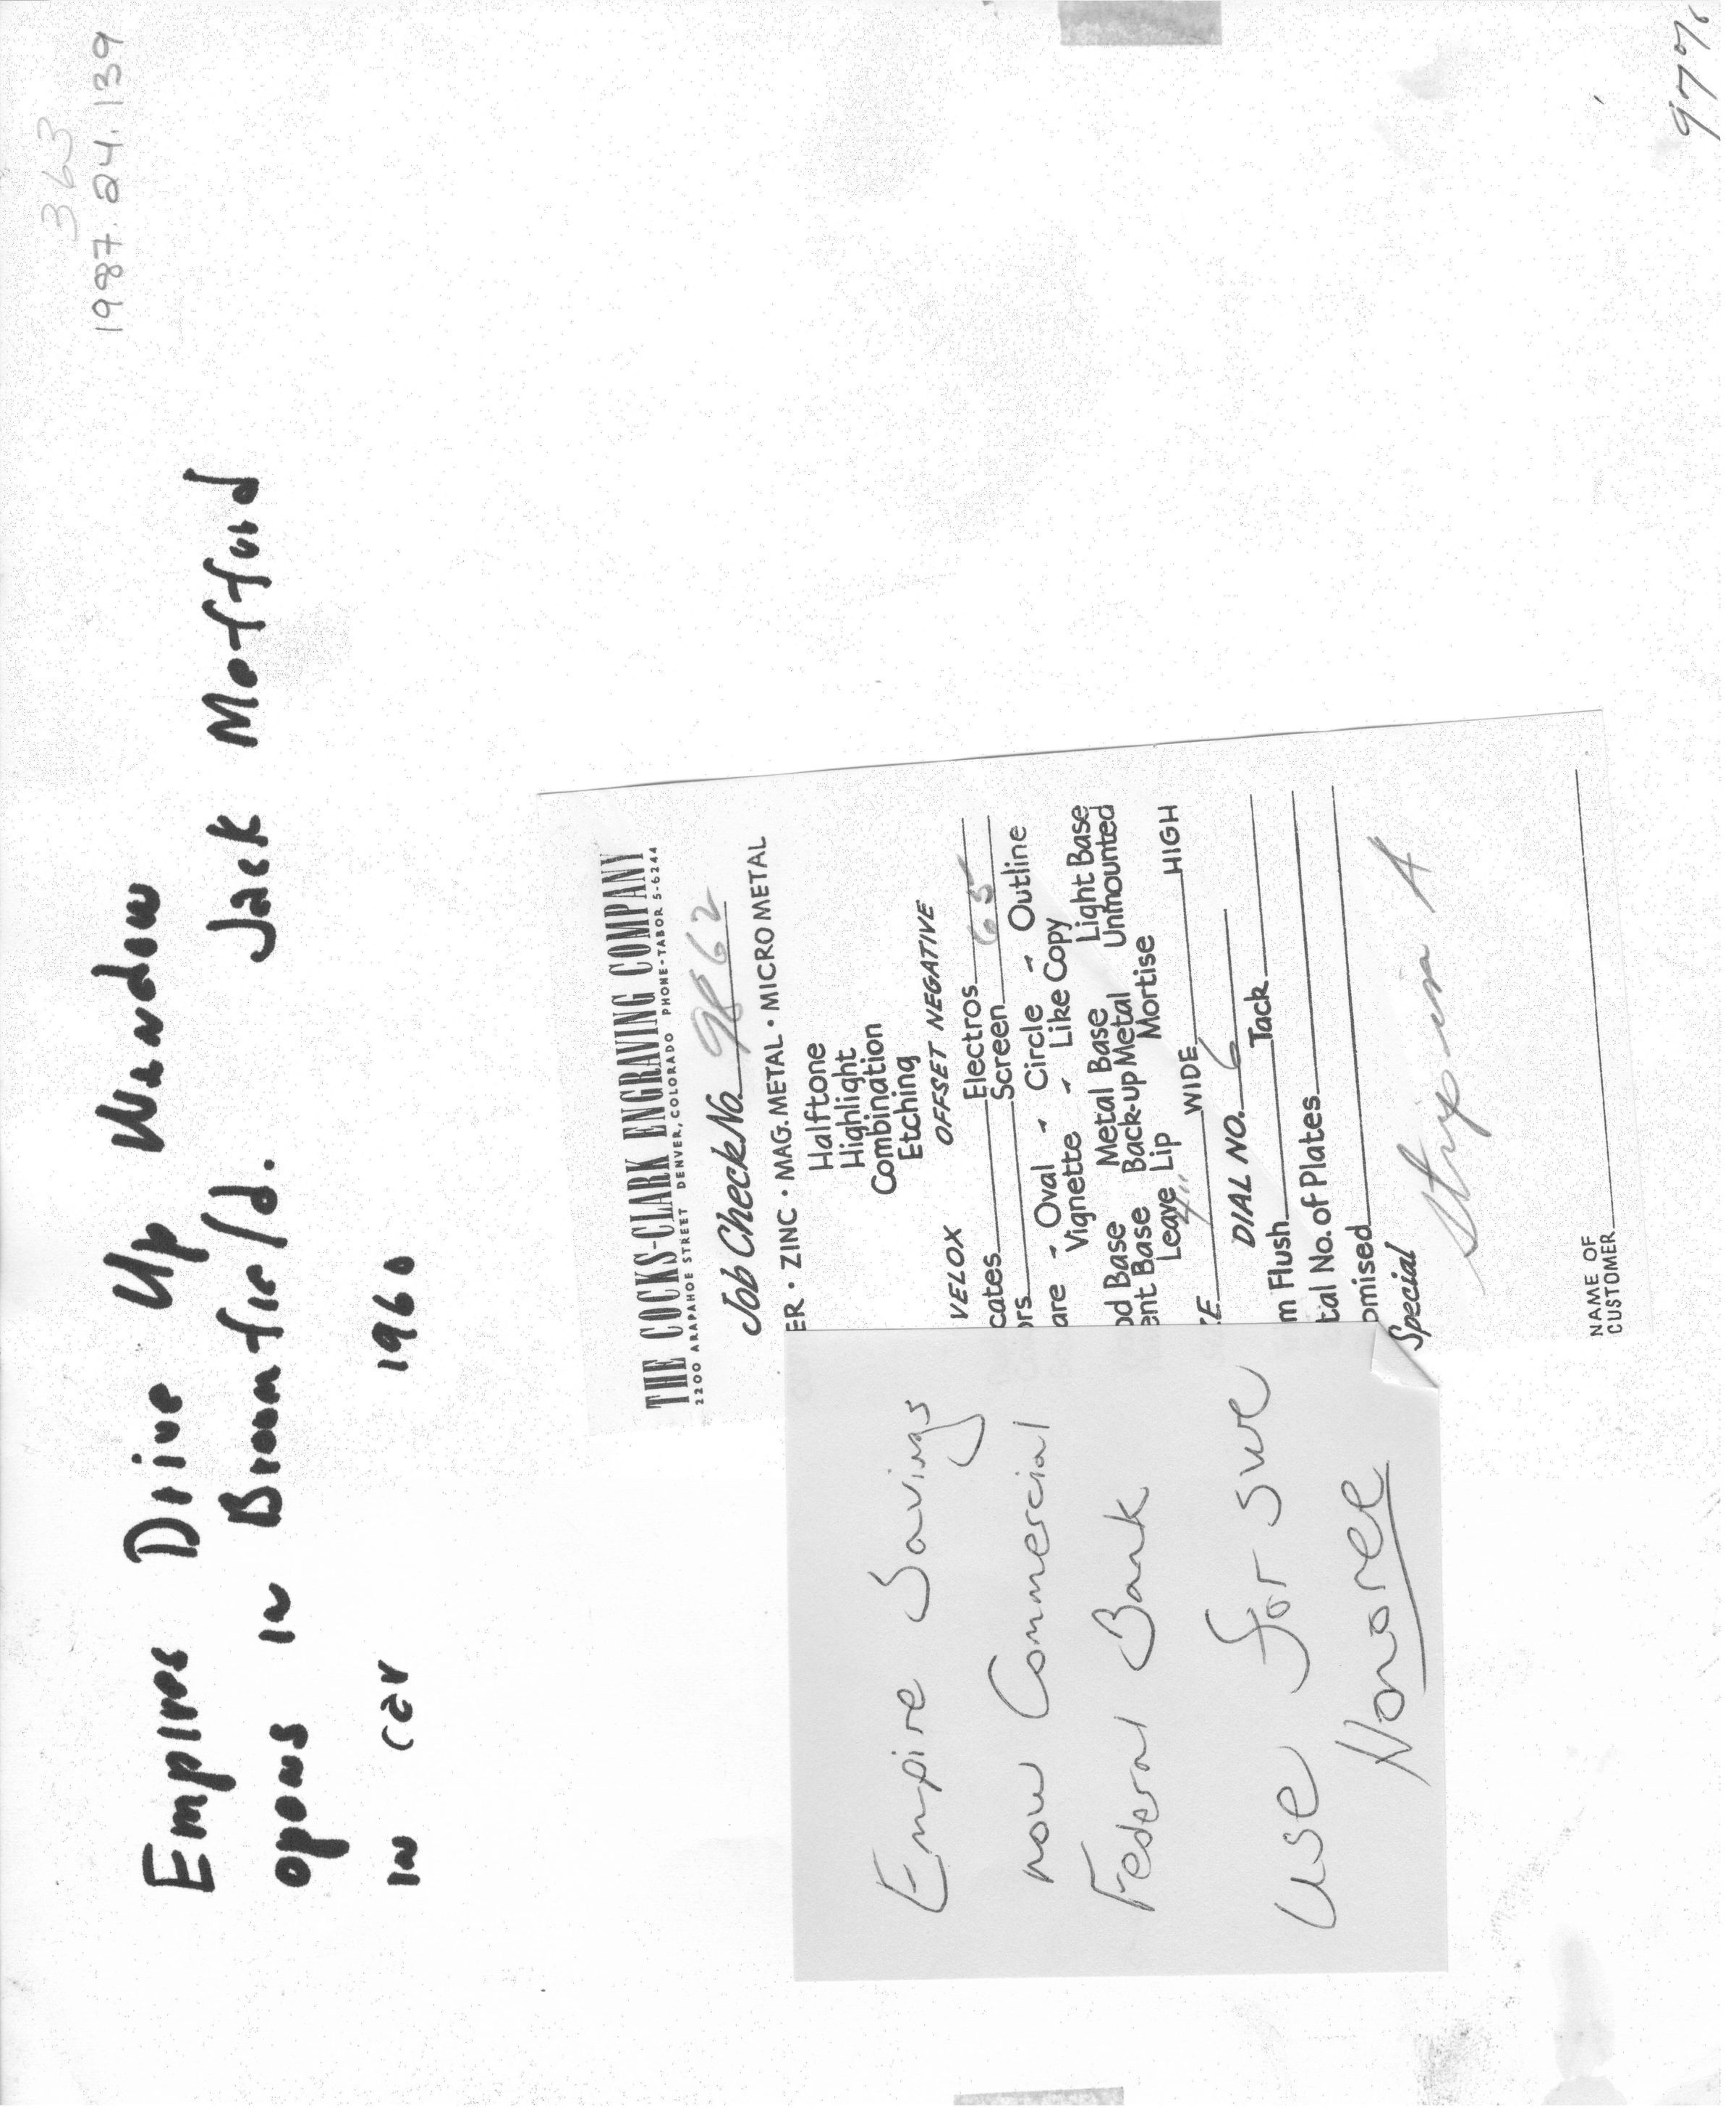 363
1987.24.139
Empires Drive Up Window
opens in Broomfield. Jack Mofford
in car 1960
THE COCKS-CLARK ENGRAVING COMPANY
2200 ARAPAHOE STREET DENVER, COLORADO PHONE-TABOR 5-6244
Job Check No. 9862
ER • ZINC • MAG. METAL • MICRO METAL
Halftone
Highlight
Combination
Etching
VELOX OFFSET NEGATIVE
cates Electros
ors Screen 65
are - Oval - Circle - Outline
Vignette - Like Copy
od Base Metal Base Light Base
ent Base Back-up Metal Unmounted
Leave Lip Mortise
ZE 4" WIDE HIGH
DIAL NO. 6
m Flush Tack
tal No. of Plates
omised
Special
Strip in A
NAME OF
CUSTOMER
Empire Savings
now Commercial
Federal Bank
Use for sure
Honoree
97%